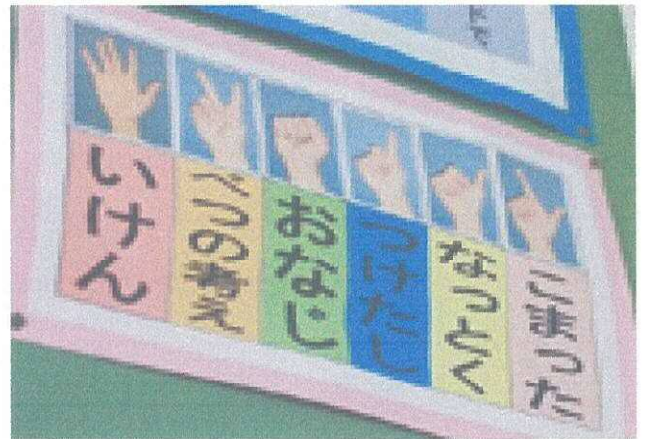 いけん
べつの考え
おなじ
つけたし
なっとく
こまった